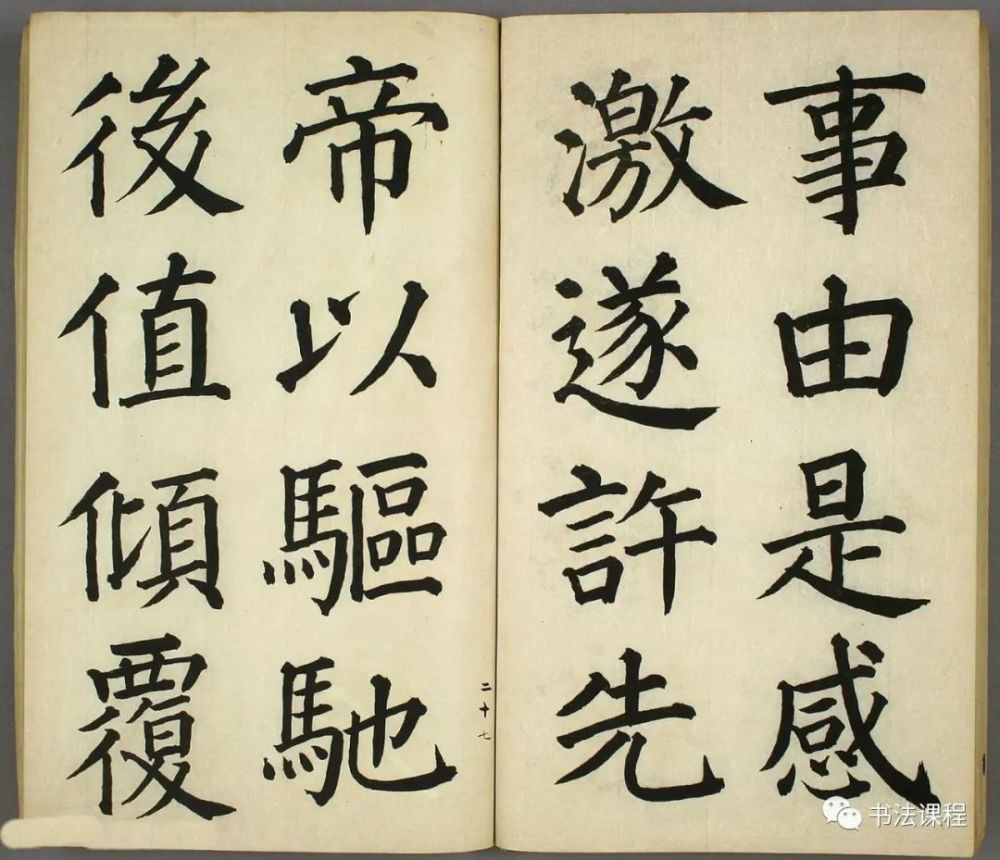 事由是感
激遂許先
帝以驅馳
後值傾覆
二十七
书法课程